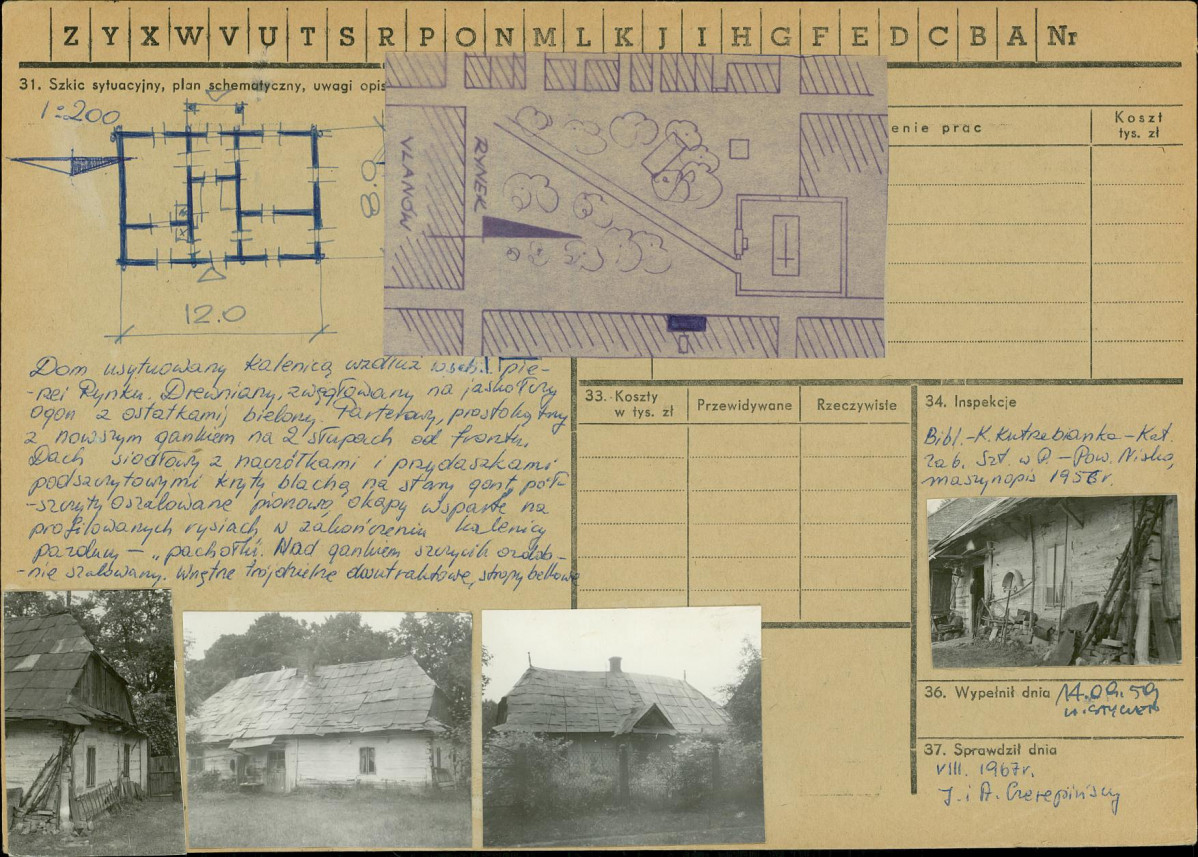 Z Y X W V U T S R P O N M L K J I H G F E D C B A Nr
31. Szkic sytuacyjny, plan schematyczny, uwagi opis
1:200
8.0
12.0
VLANÓW
RYNEK
enie prac
Koszt
tys. zł
Dom usytuowany kalenicą wzdłuż wsch. pie-
-rzei Rynku. Drewniany, zwęgłowany na jaskółczy
ogon z ostatkami, bielony. Parterowy, prostokątny
z nowszym gankiem na 2 słupach od frontu.
Dach siodłowy z naczółkami i przydaszkami
podszczytowymi kryty blachą na stary gont, pół-
-szczyty oszalowane pionowo, okapy wsparte na
profilowanych rysiach, w zakończeniu kalenicy
pazdury - "pachołki". Nad gankiem szczycik ozdob-
-nie szalowany. Wnętrze trójdzielne dwutraktowe, stropy belkowe
33. Koszty
w tys. zł
Przewidywane
Rzeczywiste
34. Inspekcje
Bibl. - K. Kutrzebianka - Kat.
zab. Szt. w P. - Pow. Nisko,
maszynopis 1956r.
36. Wypełnił dnia 14.09.59
37. Sprawdził dnia
VIII. 1967r.
J. i A. Czerepińscy